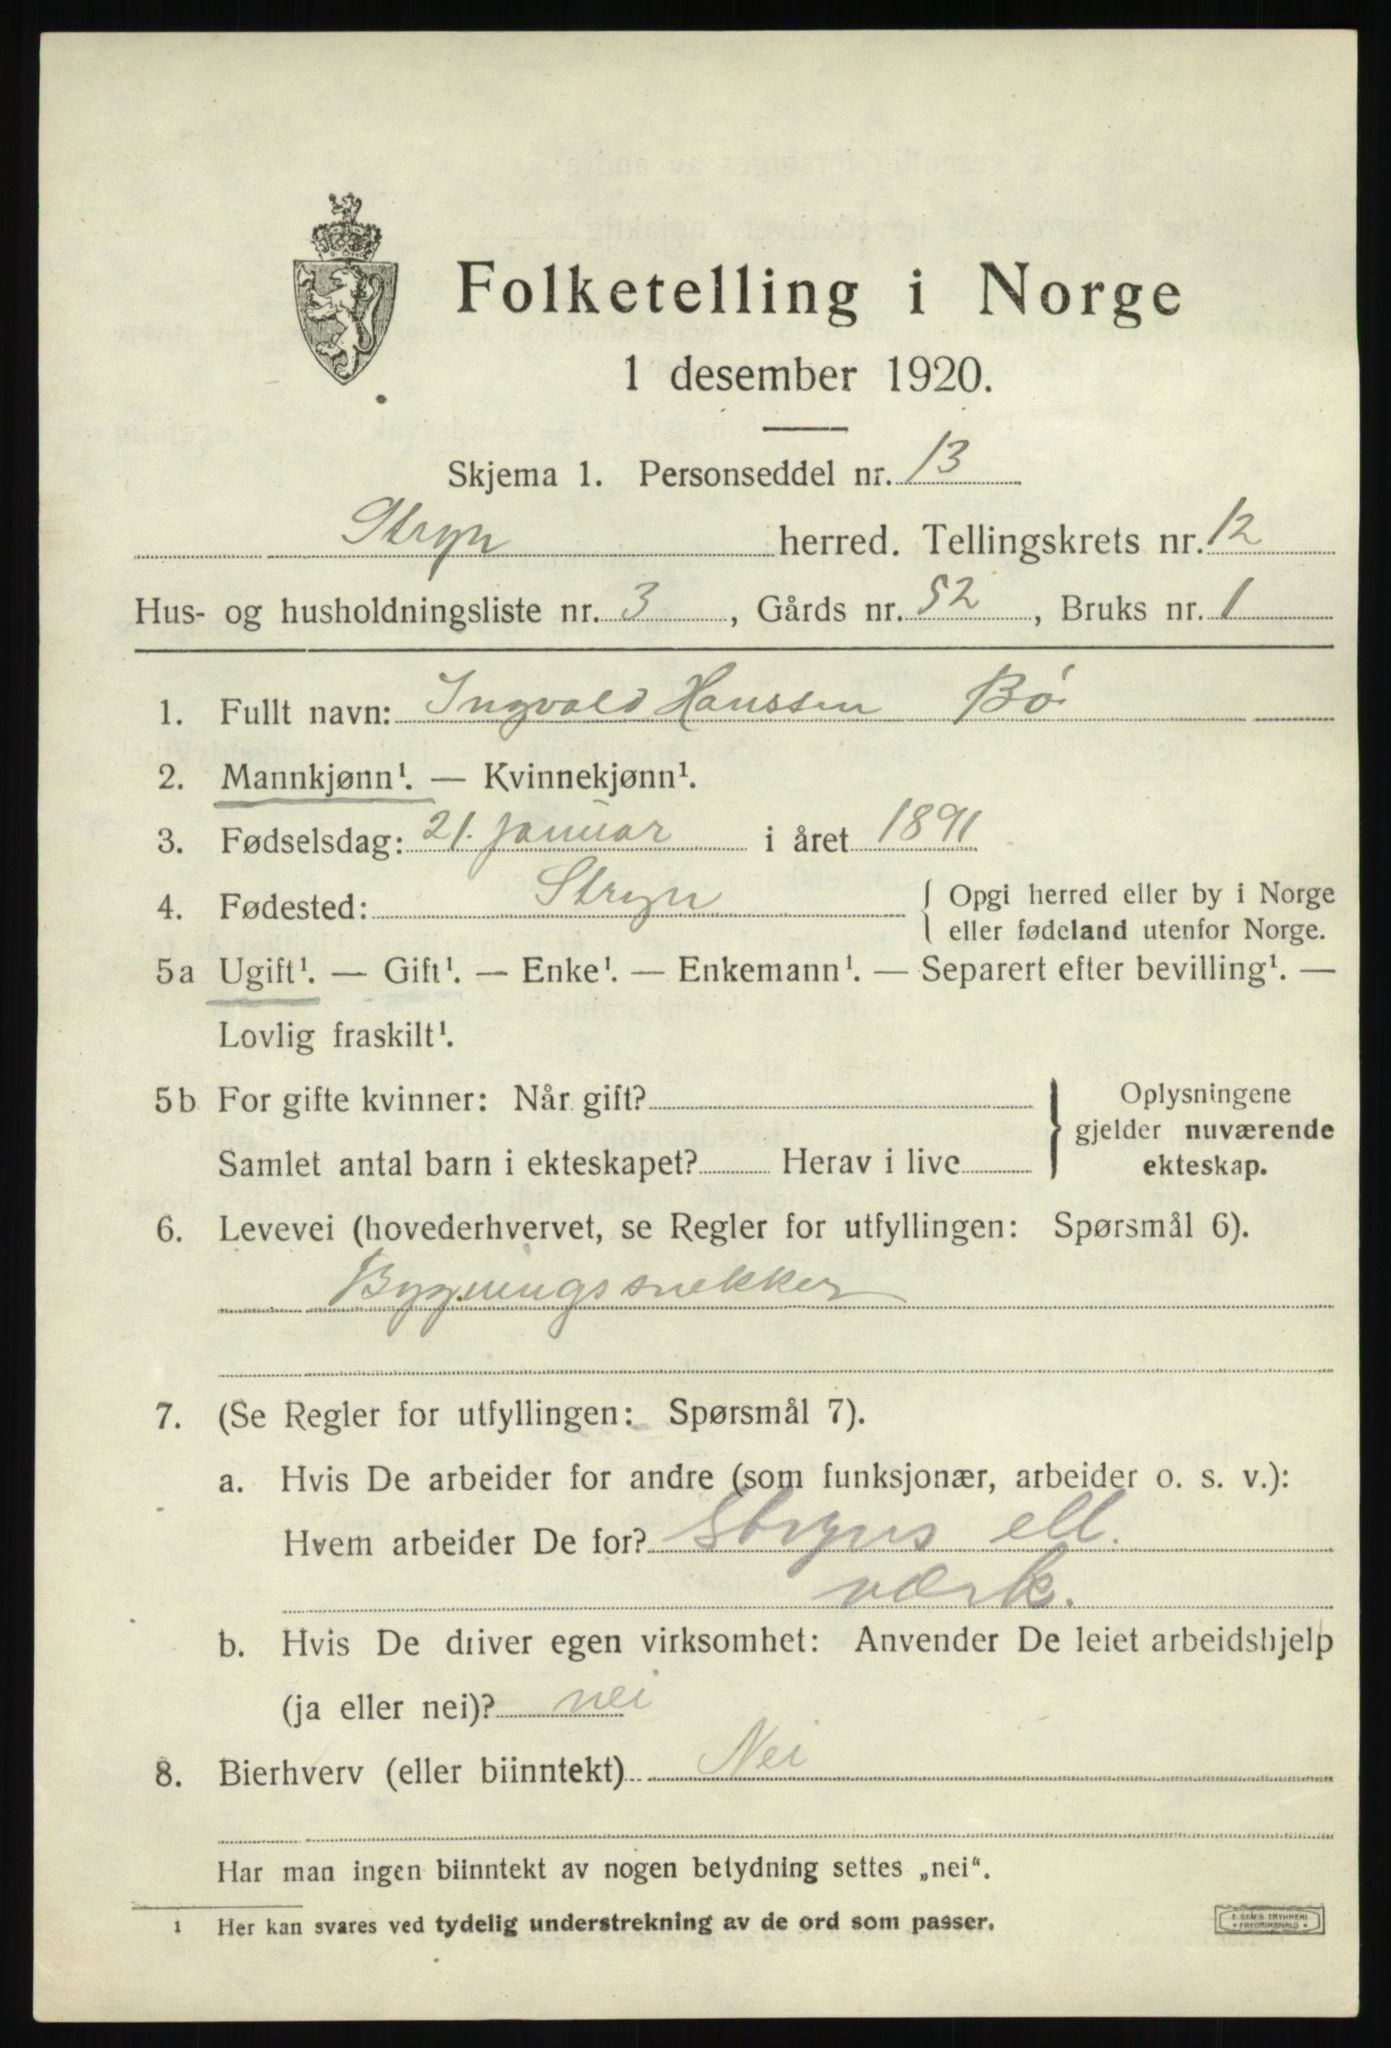 Folketelling i Norge
1 desember 1920.
Skjema 1. Personseddel nr. 13
Stryn herred. Tellingskrets nr. 12
Hus- og husholdningsliste nr. 3, Gårds nr. 52, Bruks nr. 1
1. Fullt navn: Ingvald Hanssen Bø
2. Mannkjønn¹. — Kvinnekjønn¹.
3. Fødselsdag: 21. januar i året 1891
4. Fødested: Stryn { Opgi herred eller by i Norge
eller fødeland utenfor Norge.
5a Ugift¹. — Gift¹. — Enke¹. — Enkemann¹. — Separert efter bevilling¹. —
Lovlig fraskilt¹.
5b For gifte kvinner: Når gift?
Samlet antal barn i ekteskapet? Herav i live
} Oplysningene
gjelder nuværende
ekteskap.
6. Levevei (hovederhvervet, se Regler for utfyllingen: Spørsmål 6).
Bygningssnekker
7. (Se Regler for utfyllingen: Spørsmål 7).
a. Hvis De arbeider for andre (som funksjonær, arbeider o. s. v.):
Hvem arbeider De for? Stryns ell.
værk.
b. Hvis De driver egen virksomhet: Anvender De leiet arbeidshjelp
(ja eller nei)? nei
8. Bierhverv (eller biinntekt) Nei
Har man ingen biinntekt av nogen betydning settes „nei“.
1 Her kan svares ved tydelig understrekning av de ord som passer.
E. SEMS TRYKKERI
FREDRIKSHALD